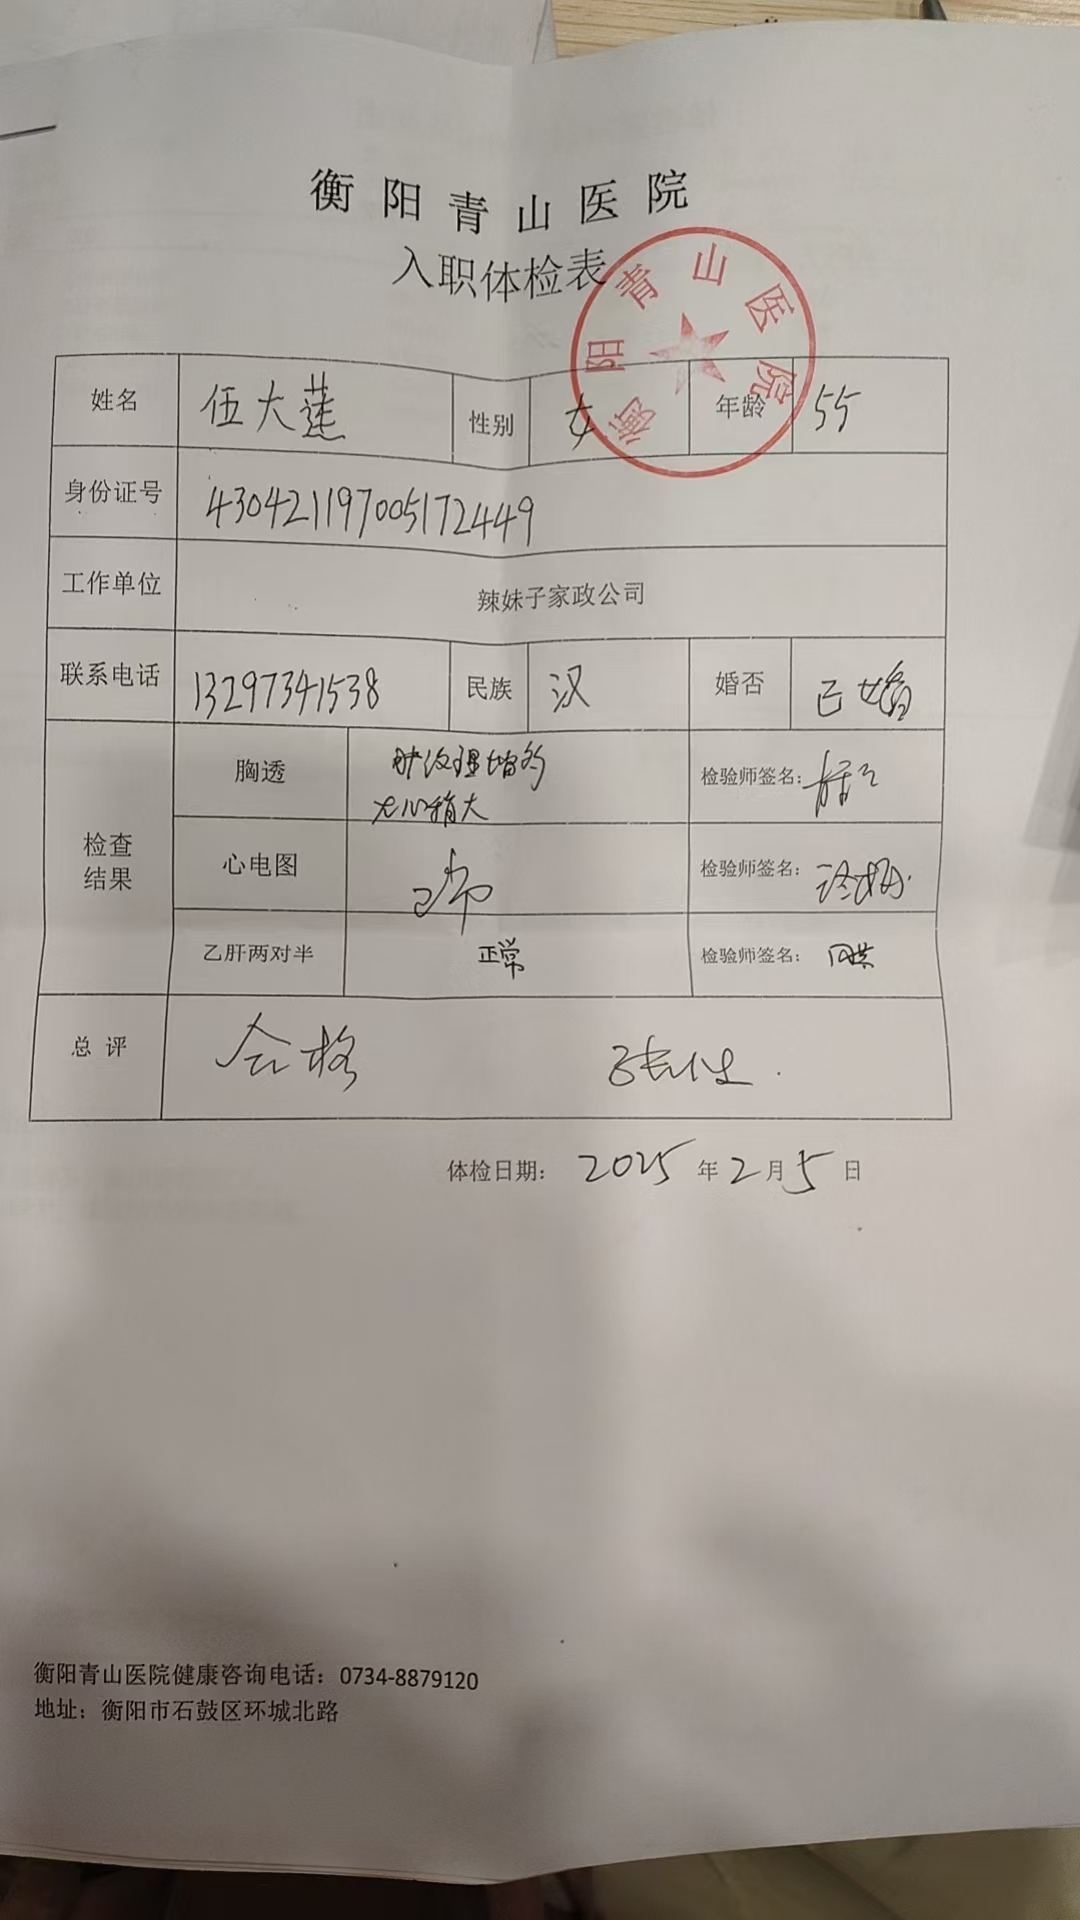 衡阳青山医院
入职体检表
衡阳青山医院
姓名 伍大莲 性别 女 年龄 55
身份证号 430421197005172449
工作单位 辣妹子家政公司
联系电话 13297341538 民族 汉 婚否 已婚
检查结果
胸透 肺纹理增多 检验师签名:
左心稍大
心电图 正常 检验师签名:
乙肝两对半 正常 检验师签名:
总评 合格
体检日期: 2025年2月5日
衡阳青山医院健康咨询电话: 0734-8879120
地址: 衡阳市石鼓区环城北路